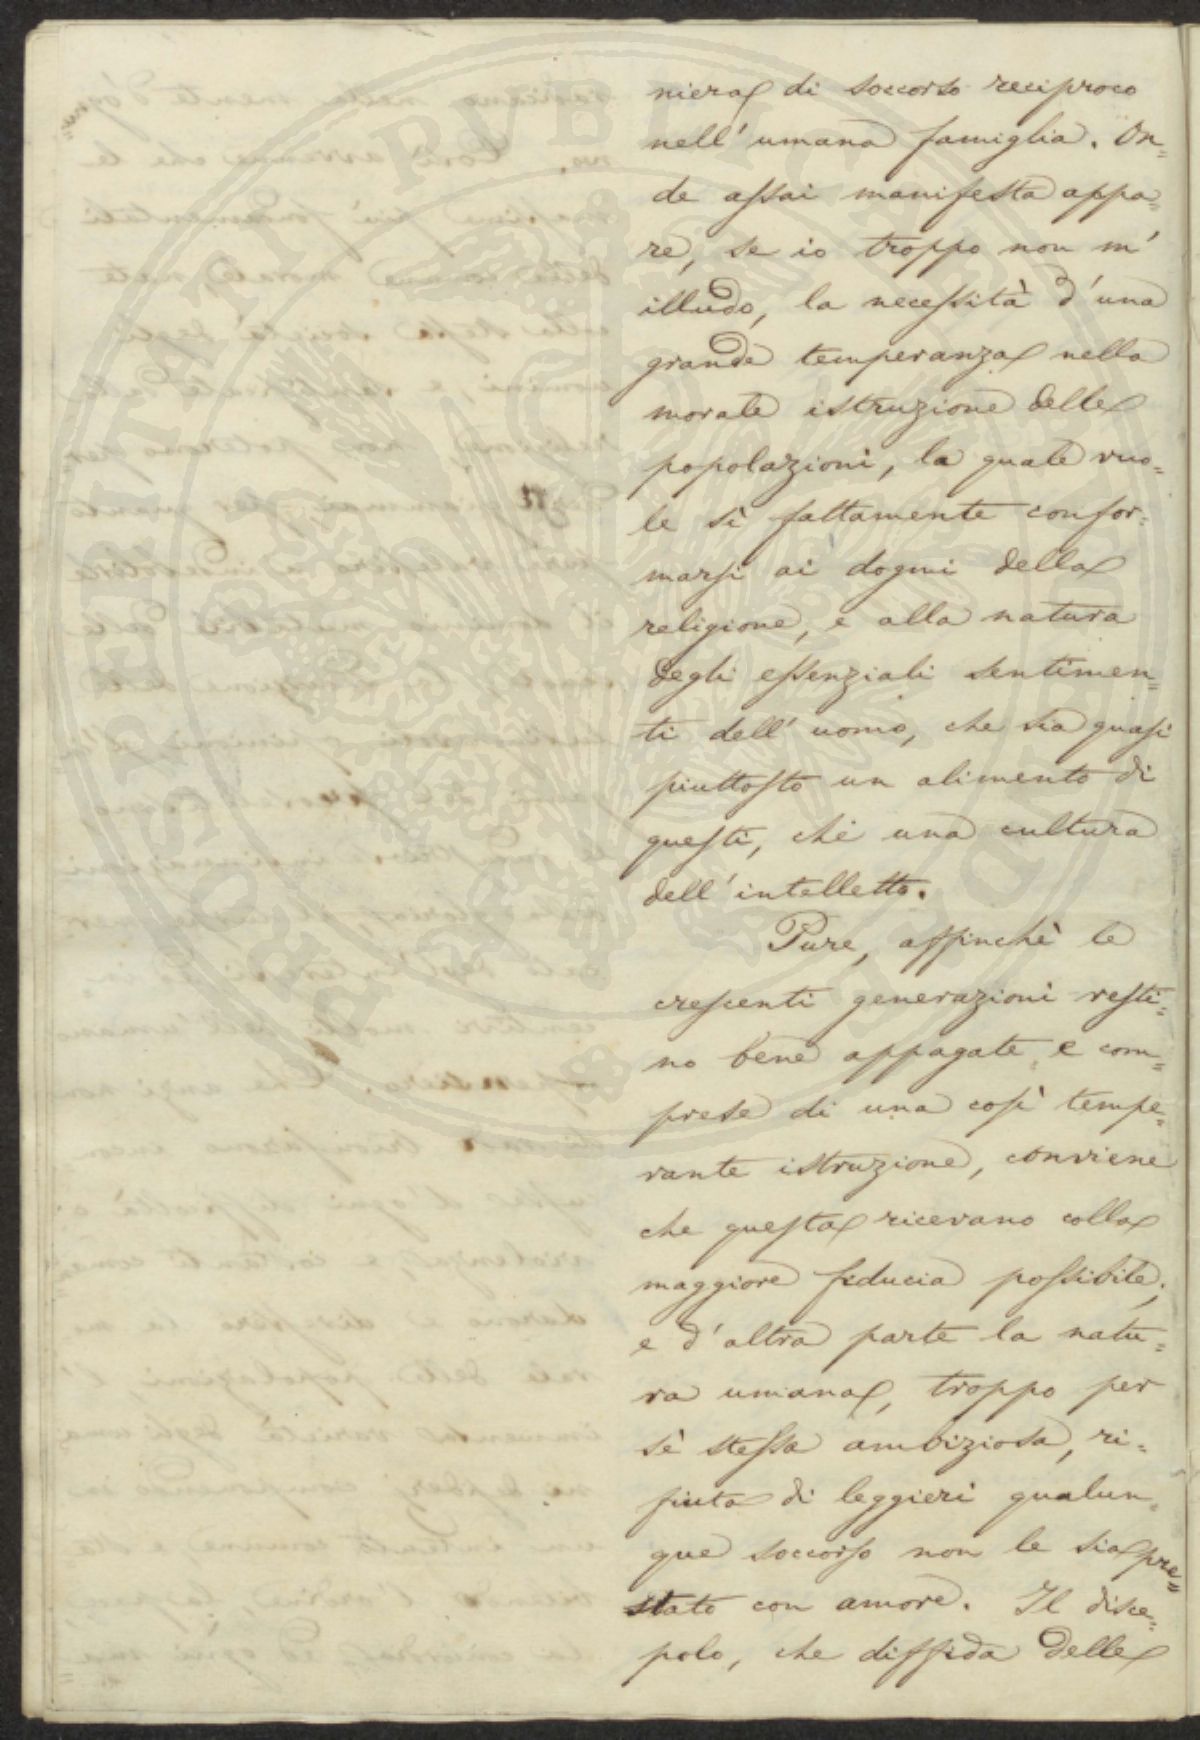 niera di soccorso reciproco
nell' umana famiglia. On=
de assai manifesta appa=
re, se io troppo non m'
illudo, la necessità d'una
grande temperanza nella
morale istruzione delle
popolazioni, la quale vuo=
le sì fattamente confor=
marsi ai dogmi della
religione, e alla natura
degli essenziali sentimen=
ti dell' uomo, che sia quasi
piuttosto un alimento di
questi, che una cultura
dell' intelletto.
Pure, affinchè le
crescenti generazioni resti=
no bene appagate e com=
prese di una così tempe=
rante istruzione, conviene
che questa ricevano colla
maggiore fiducia possibile;
e d'altra parte la natu=
ra umana, troppo per
sè stessa ambiziosa, ri=
fiuta di leggieri qualun=
que soccorso non le sia pre=
stato con amore. Il disce=
polo, che diffida delle